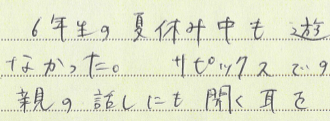 6年生の夏休み中も遊
なかった。サピックスでの
親の話しにも聞く耳を